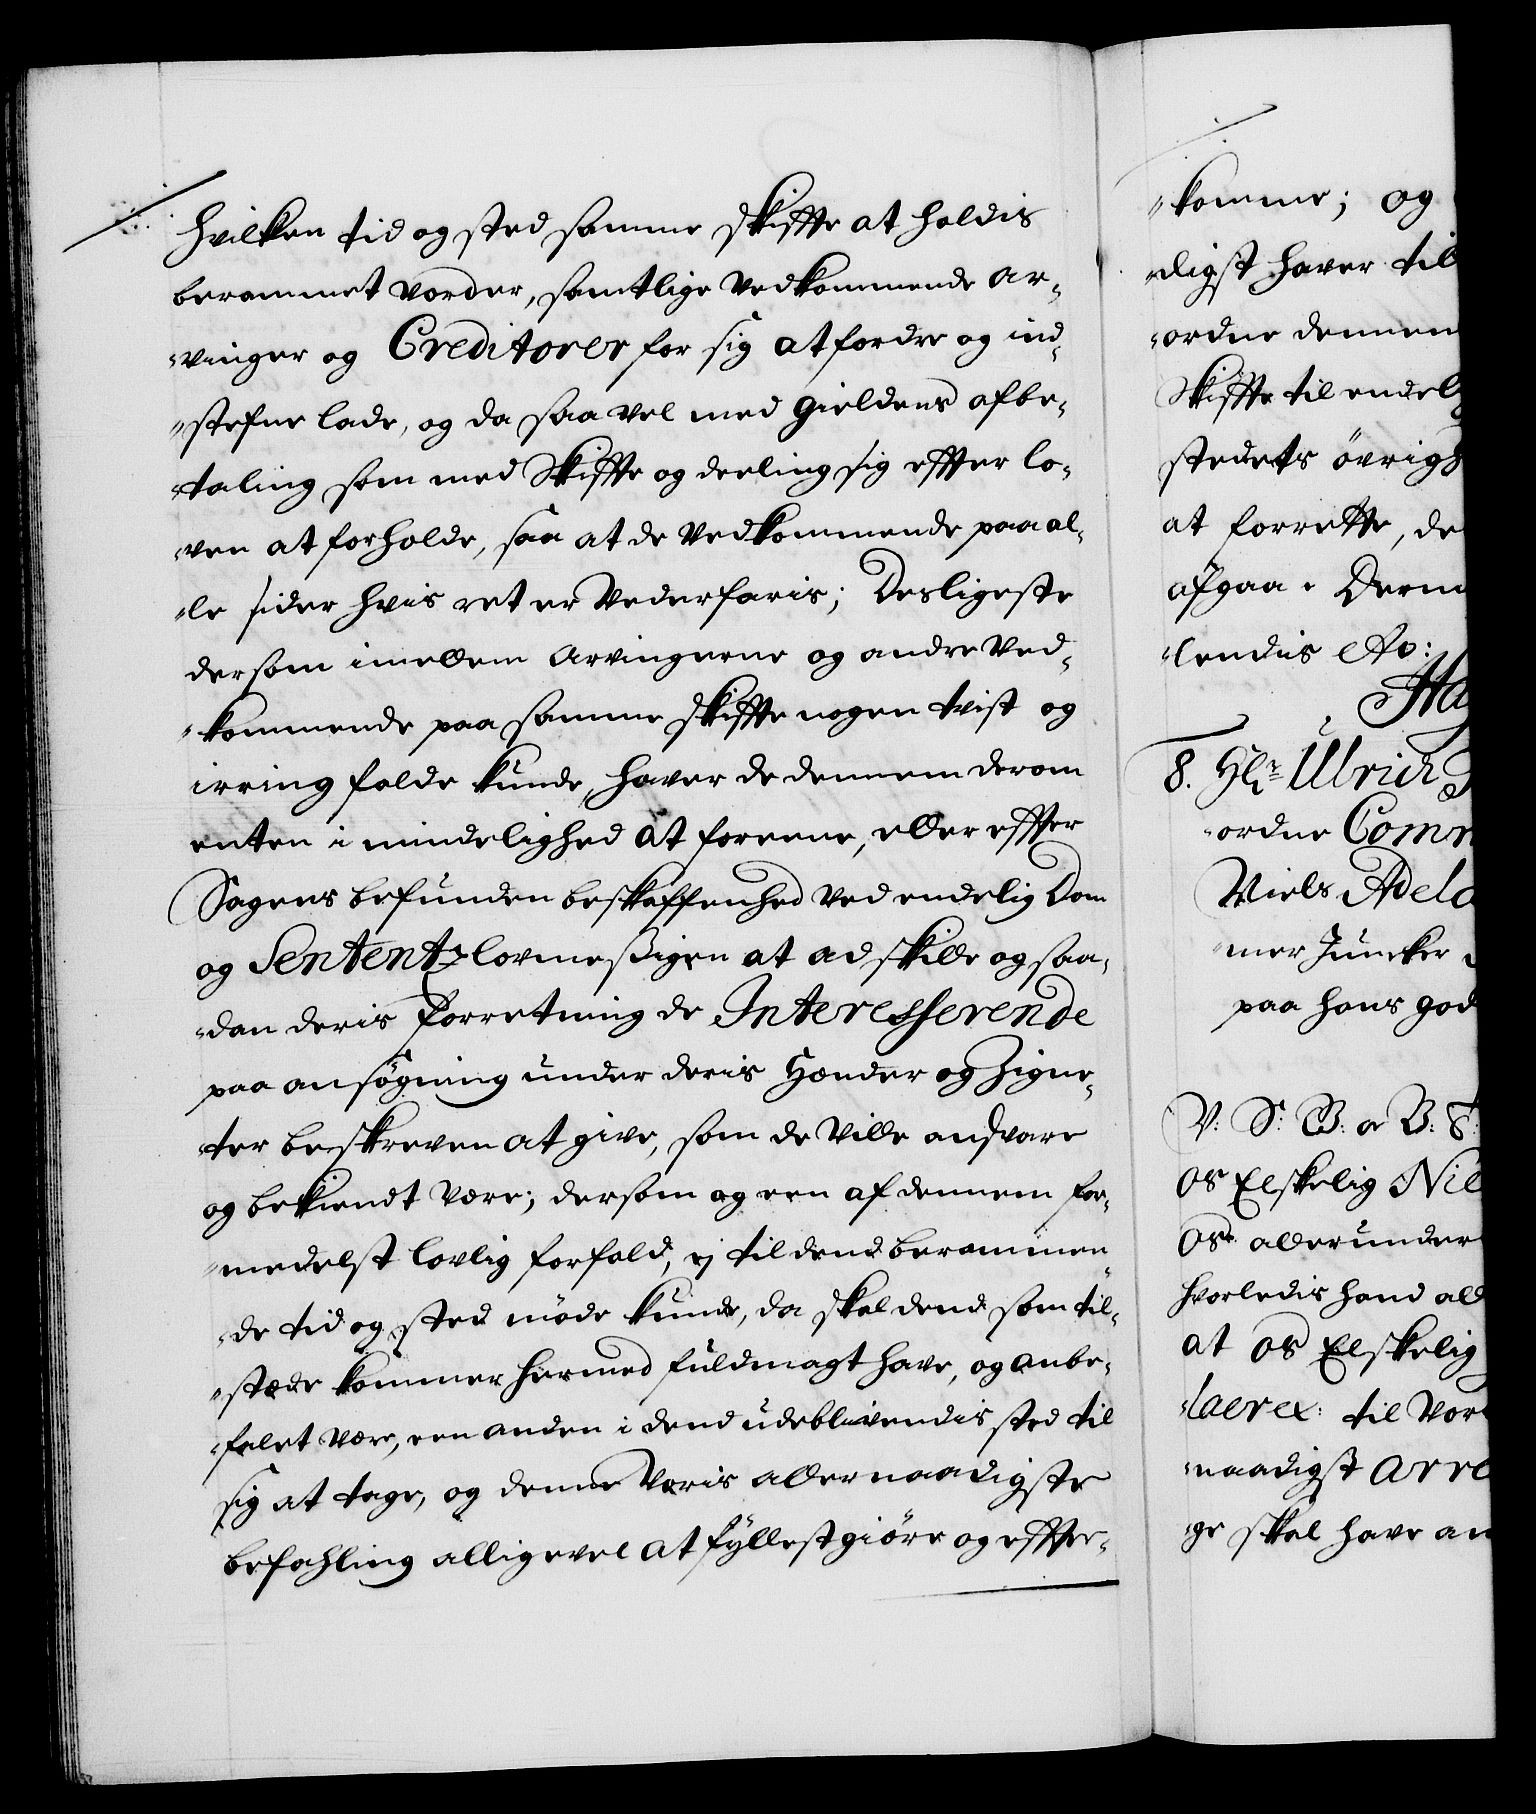 hvilken tid og sted samme skiffte at holdis
berammet vorder, samtlige Vedkommende ar-
-vinger og Creditorer for sig at fordre og ind-
-stefne lade, og da saa vel med gieldens afbe-
-taling som med Skiffte og deeling sig effter lo-
-ven at forholde, saa at de Vedkommende paa al-
-le sider hvis ret er Vederfaris; Desligeste
dersom imellem arvingerne og andre Ved-
-kommende paa samme skiffte nogen tvist og
irring falde kunde, haver de dennem derom
enten i mindelighed at foreene, eller effter
Sagens befunden beskaffenhed ved endelig Dom
og Sententz lovmeßigen at adskille og saa-
-dan deris Forretning de Interesserende
paa ansøgning under deris Hænder og Zigne-
-ter beskreven at give, som de Ville andsvare
og bekiendt være; dersom og een af dennem for-
-medelst lovlig forfald, ej til dend berammen-
-de tid og sted møde kunde, da skal dend som til-
-stæde kommer hermed fuldmagt have, og anbe-
-falet være, een anden i dend udeblivendis sted til
sig at tage, og denne Voris allernaadigste
befahling alligevel at fyllestgiøre og effter-
-komme; og
-digst haver til
-ordne dennem
Skiffte til endel
stedets øvrigh
at forrette, de
afgaa. Derm
-lendis etc:
Ha
8. Hr. Ulrich
-ordne Comm
Niels Adel
-mer Juncker
paa hans god
V: S: G: a V: T:
os Elskelig Nil
Os allerunder
hvorledis hand all
at os Elskelig
-laer ex: til Vor
-naadigst arre
-ge skal have an